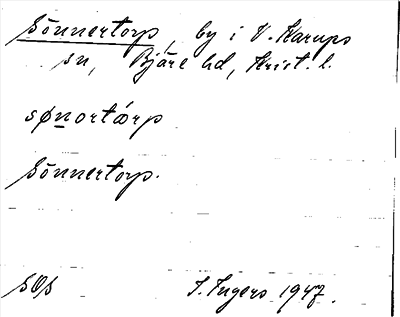 Sönnertorp, by i V. Karups
sn, Bjäre hd, Krist. l.
sønortǻrp
Sönnertorp.
SOS
I. Ingers 1947.